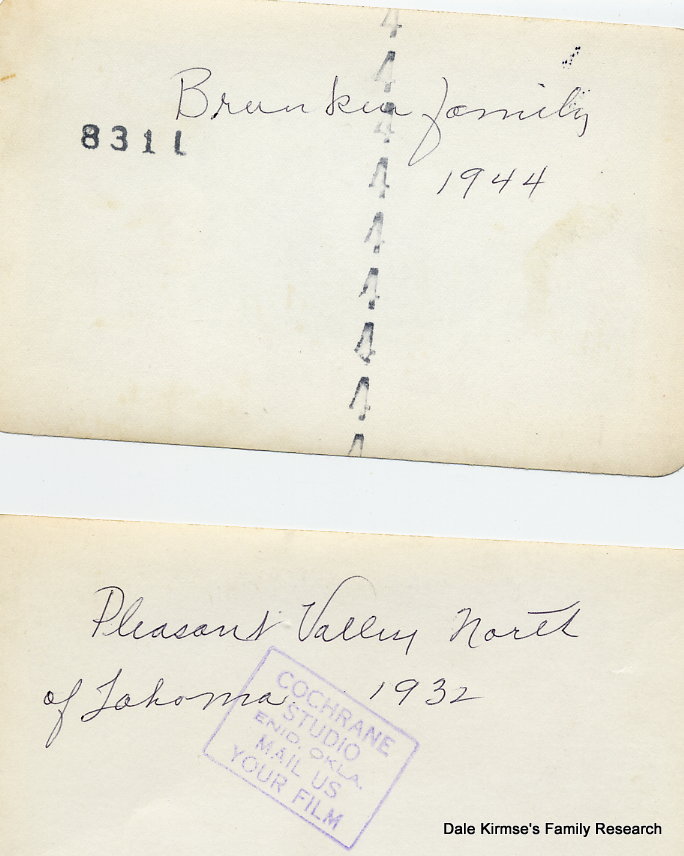 Brunken family
8311
1944
4
4
4
4
4
4
4
4
4
Pleasant Valley North
of Lahoma 1932
COCHRANE
STUDIO
ENID, OKLA.
MAIL US
YOUR FILM
Dale Kirmse's Family Research